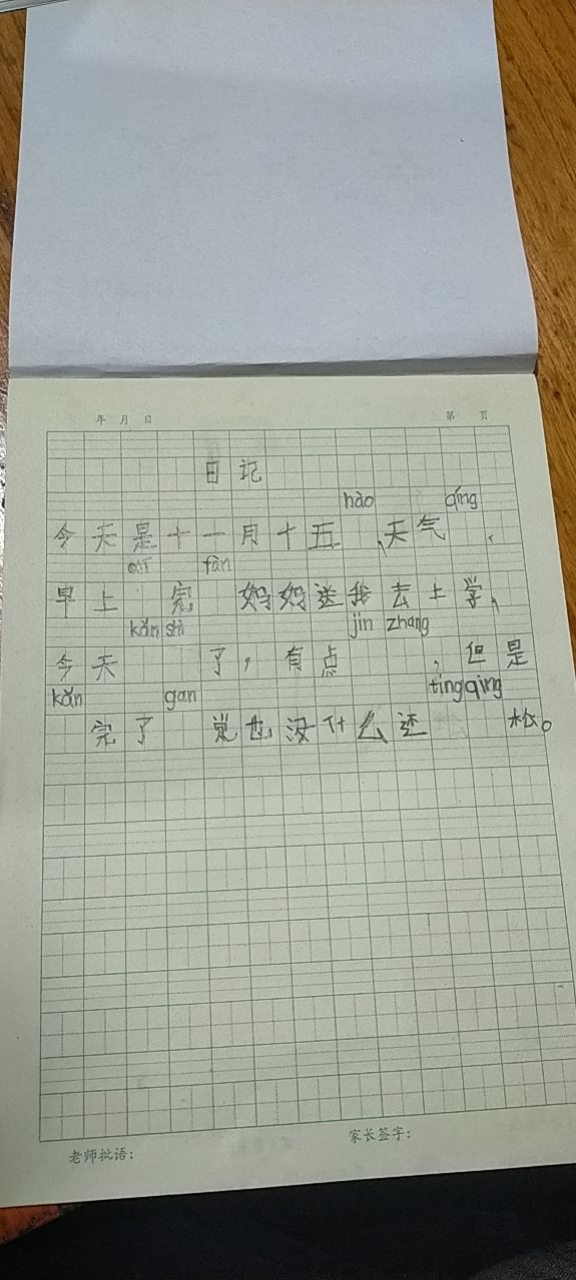 年 月 日
第 页
日记
hào qíng
今天是十一月十五 、天气 ，
chī fàn
早上 完 妈妈送我去上学、
kǎn shì jǐn zhāng
今天 了，有点 ，但是
kǎn gan tíng qīng
完了 觉也没什么还 松。
老师批语：
家长签字：